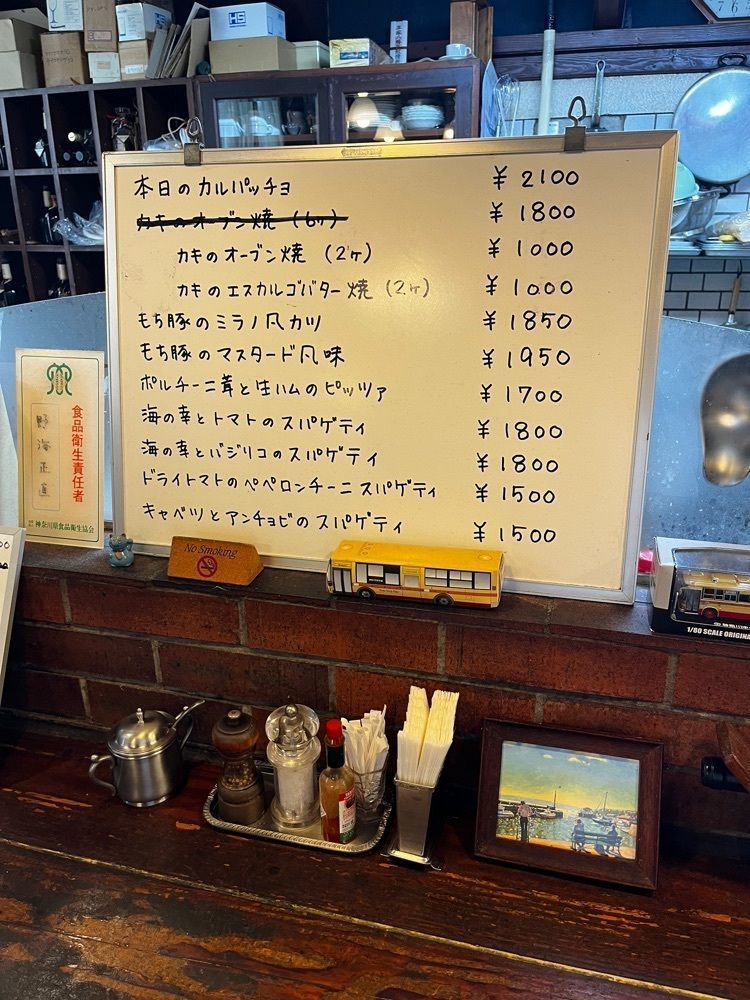 本日のカルパッチョ ￥2100
カキのオーブン焼 (6ヶ) ￥1800
カキのオーブン焼 (2ヶ) ￥1000
カキのエスカルゴバター焼 (2ヶ) ￥1000
もち豚のミラノ風カツ ￥1850
もち豚のマスタード風味 ￥1950
ポルチーニ茸と生ハムのピッツァ ￥1700
海の幸とトマトのスパゲティ ￥1800
海の幸とバジリコのスパゲティ ￥1800
ドライトマトのペペロンチーニスパゲティ ￥1500
キャベツとアンチョビのスパゲティ ￥1500
食品衛生責任者
野海正宣
神奈川県食品衛生協会
No Smoking
1/80 SCALE ORIGINA